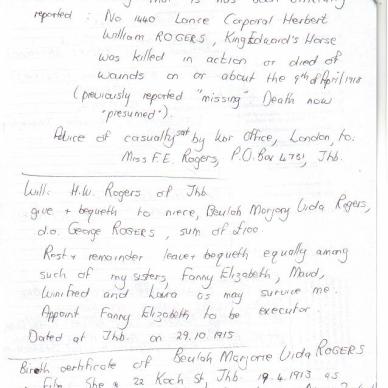 that is has been officially
reported : No 1440 Lance Corporal Herbert
William ROGERS, King Edward's Horse
was killed in action or died of
wounds on or about the 9th of April 1918
(previously reported "missing" Death now
"presumed").
Advice of casualty sent by War Office, London, to:
Miss F.E. Rogers, P.O. Box 4781, Jhb.
Will: H.W. Rogers of Jhb.
give + begueth to niece, Beulah Marjory Vida Rogers,
d.o. George ROGERS, sum of £100.
Rest + remainder leave + begueth equally among
such of my sisters, Fanny Elizabeth, Maud,
Winifred and Laura as may survive me.
Appoint Fanny Elizabeth to be executor.
Dated at Jhb. on 29.10.1915
Birth certificate of Beulah Marjorie Vida ROGERS
File. She 22 Koch St, Jhb 19.4.1913 as